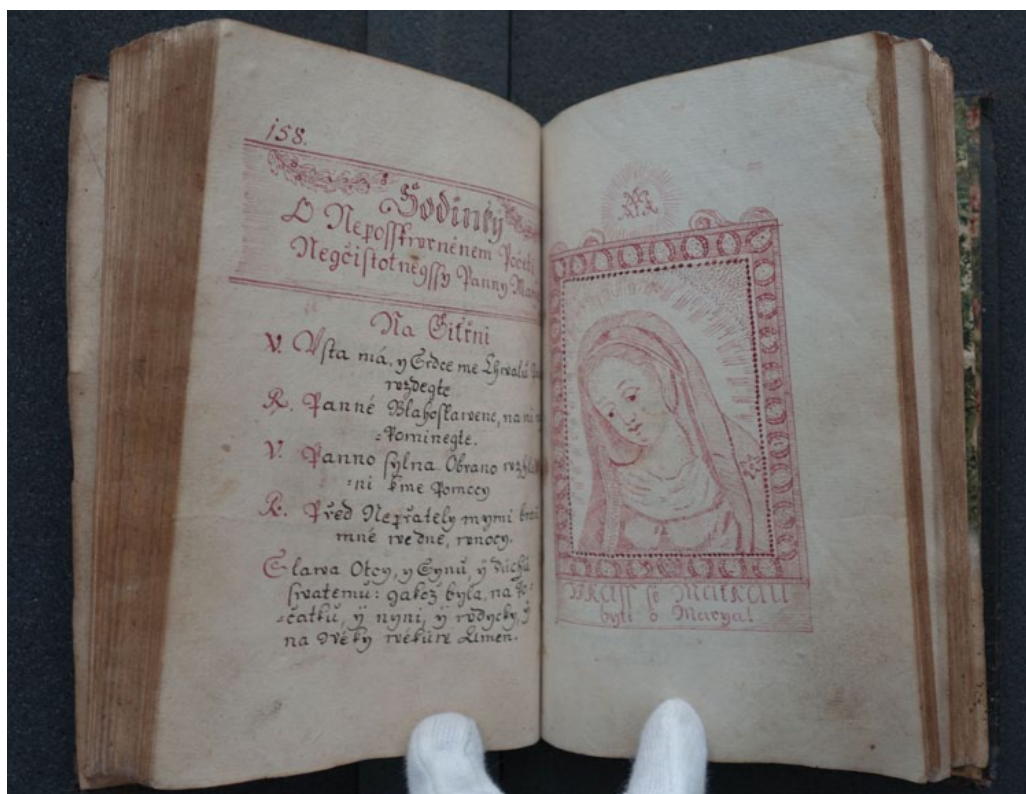 158.
Hodinky
O Neposskwrněnem Početj
Negčistotněgssy Panny Mar
Na Gitřni
V. Vsta má, y Srdce me Chwalu
rozdegte
R. Panně Blahoslawene, na ni
-Pominegte.
V. Panno sylna Obrano
-ni kme Pomocy
R. Před Nepřately mymi
mně we dne, wnocy.
Slawa Otcy, y Synu, ÿ Duchu
swatemu: gakož byla, na Po-
-čatku, ÿ nyni, ÿ wždycky, ÿ
na Wěky wěkuw Amen.
MA
UKAŽ se MATKAU
byti ó Marya!